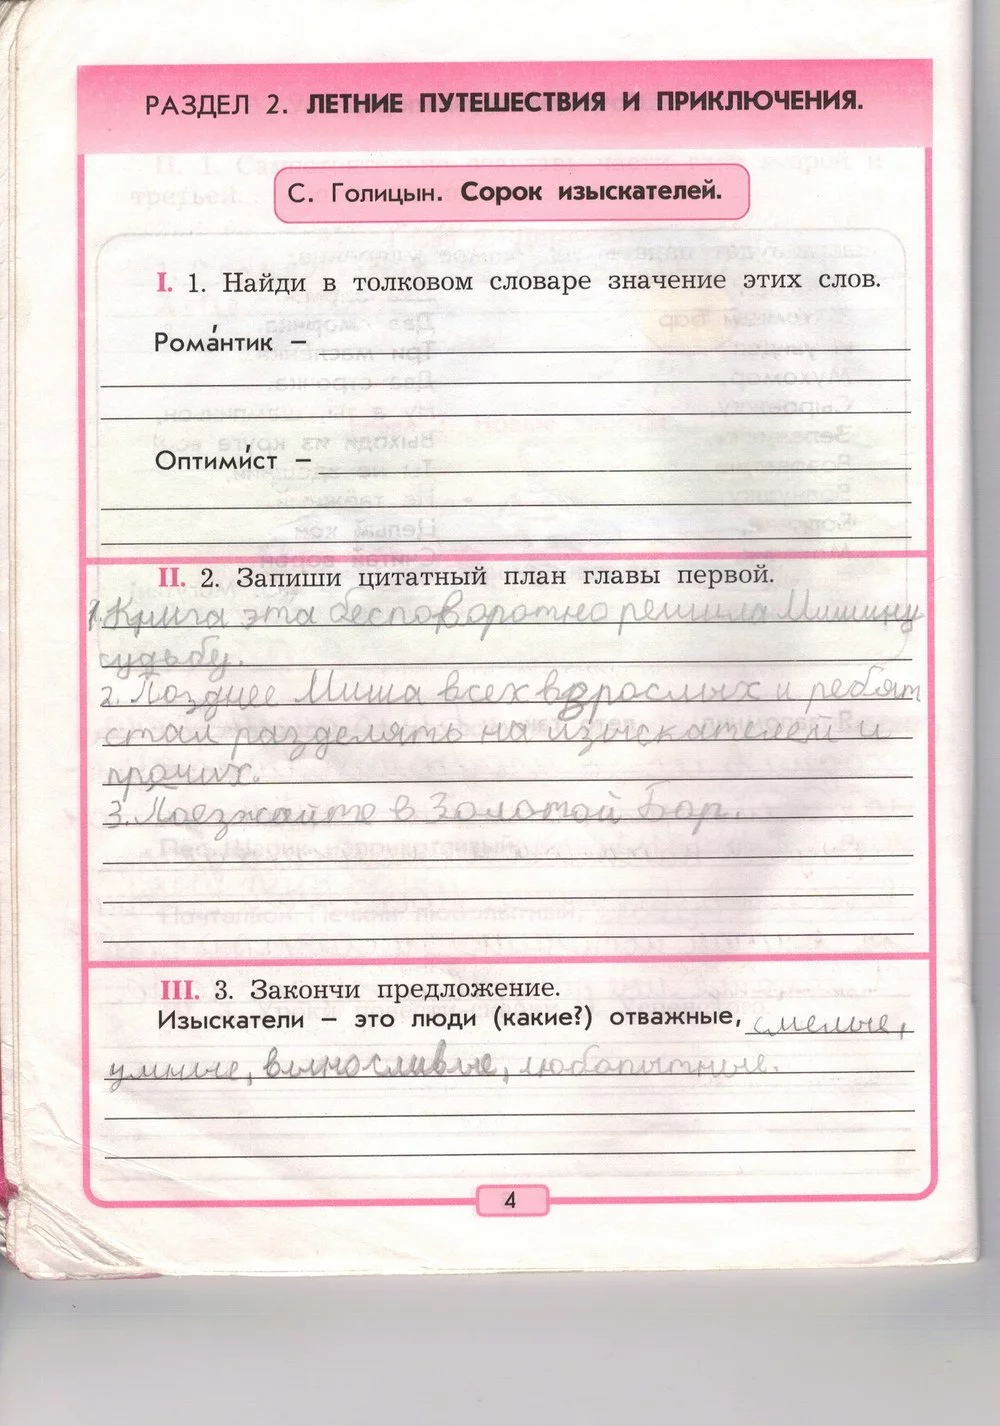 РАЗДЕЛ 2. ЛЕТНИЕ ПУТЕШЕСТВИЯ И ПРИКЛЮЧЕНИЯ.
С. Голицын. Сорок изыскателей.
I. 1. Найди в толковом словаре значение этих слов.
Рома́нтик –
Оптими́ст –
II. 2. Запиши цитатный план главы первой.
1. Книга эта бесповоротно решила Мишину
судьбу.
2. Позднее Миша всех взрослых и ребят
стал разделять на изыскателей и
прочих.
3. Поезжайте в Золотой Бор.
III. 3. Закончи предложение.
Изыскатели – это люди (какие?) отважные, смелые,
умные, выносливые, любопытные.
4